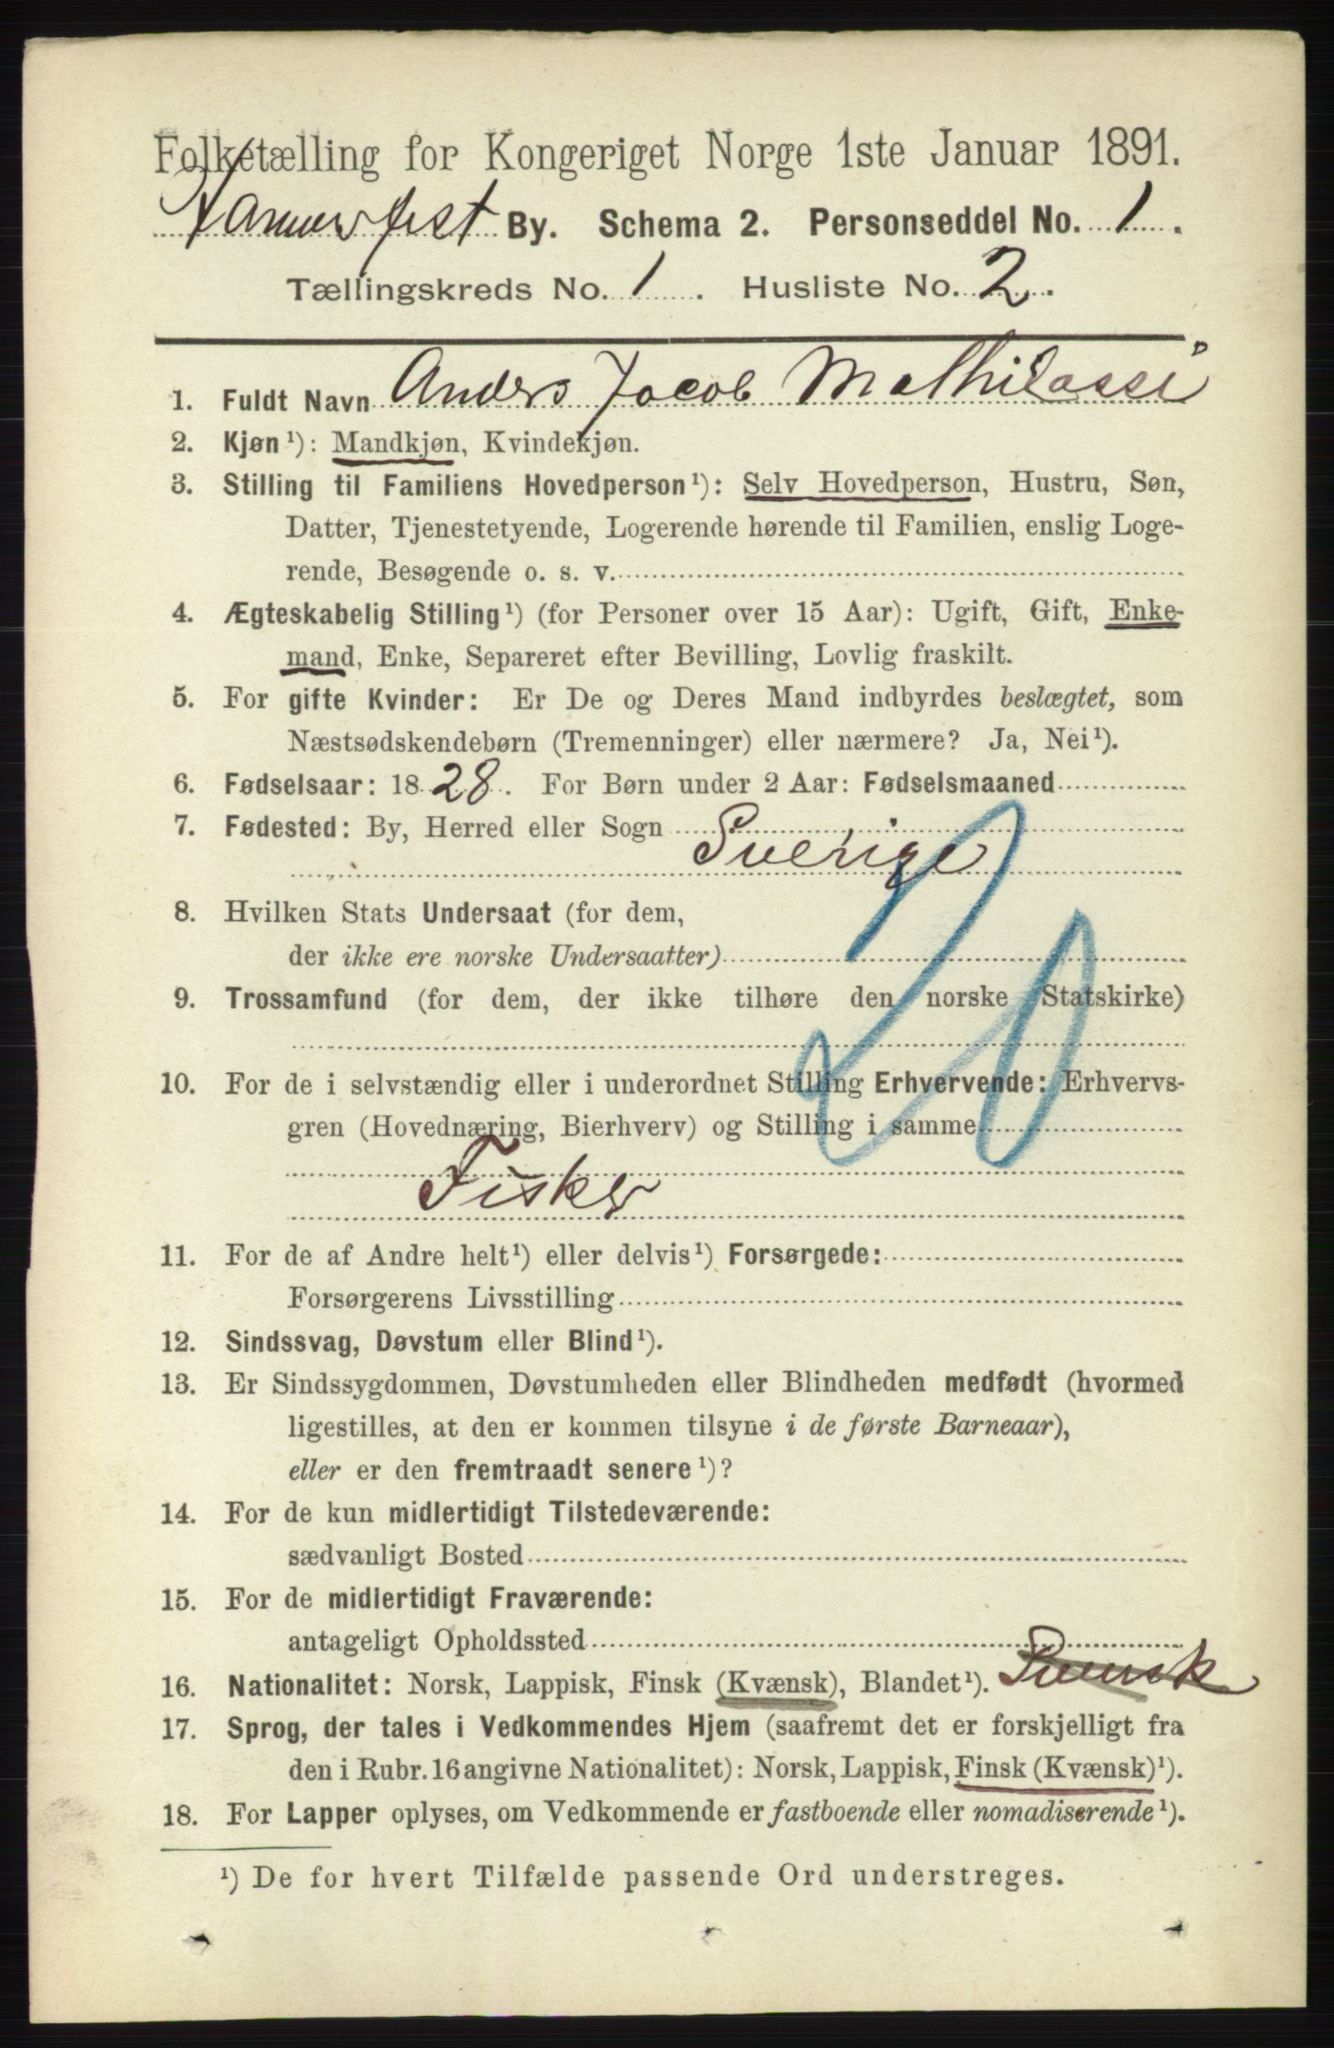 Folketælling for Kongeriget Norge 1ste Januar 1891.
Hammerfest By. Schema 2. Personseddel No. 1.
Tællingskreds No. 1. Husliste No. 2.
1. Fuldt Navn Anders Jacob Mathilassi
2. Kjøn¹): Mandkjøn, Kvindekjøn.
3. Stilling til Familiens Hovedperson¹): Selv Hovedperson, Hustru, Søn,
Datter, Tjenestetyende, Logerende hørende til Familien, enslig Loge-
rende, Besøgende o. s. v.
4. Ægteskabelig Stilling¹) (for Personer over 15 Aar): Ugift, Gift, Enke-
mand, Enke, Separeret efter Bevilling, Lovlig fraskilt.
5. For gifte Kvinder: Er De og Deres Mand indbyrdes beslægtet, som
Næstsødskendebørn (Tremenninger) eller nærmere? Ja, Nei¹).
6. Fødselsaar: 1828. For Børn under 2 Aar: Fødselsmaaned
7. Fødested: By, Herred eller Sogn
Sverige
8. Hvilken Stats Undersaat (for dem,
der ikke ere norske Undersaatter)
9. Trossamfund (for dem, der ikke tilhøre den norske Statskirke)
20
10. For de i selvstændig eller i underordnet Stilling Erhvervende: Erhvervs-
gren (Hovednæring, Bierhverv) og Stilling i samme
Fisker
11. For de af Andre helt¹) eller delvis¹) Forsørgede:
Forsørgerens Livsstilling
12. Sindssvag, Døvstum eller Blind¹).
13. Er Sindssygdommen, Døvstumheden eller Blindheden medfødt (hvormed
ligestilles, at den er kommen tilsyne i de første Barneaar),
eller er den fremtraadt senere¹)?
14. For de kun midlertidigt Tilstedeværende:
sædvanligt Bosted
15. For de midlertidigt Fraværende:
antageligt Opholdssted
16. Nationalitet: Norsk, Lappisk, Finsk (Kvænsk), Blandet¹). Svensk
17. Sprog, der tales i Vedkommendes Hjem (saafremt det er forskjelligt fra
den i Rubr. 16 angivne Nationalitet): Norsk, Lappisk, Finsk (Kvænsk)¹).
18. For Lapper oplyses, om Vedkommende er fastboende eller nomadiserende¹).
¹) De for hvert Tilfælde passende Ord understreges.